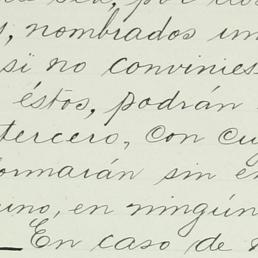 , nombrados un
si no convinies
éstos, podrán
tercero, con cu
formarán sin e
uno, en ningún
En caso de